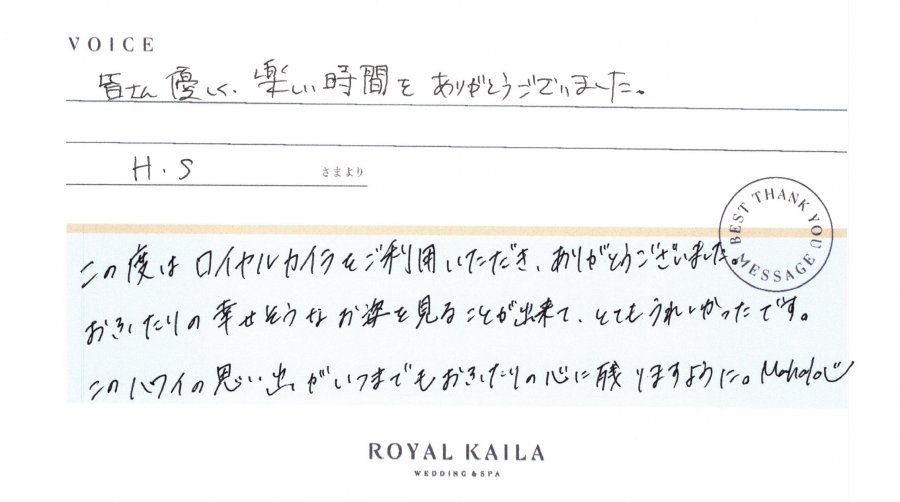 VOICE
皆さん優しく、楽しい時間をありがとうございました。
H.S さまより
BEST THANK YOU MESSAGE
この度はロイヤルカイラをご利用いただき、ありがとうございました。
おふたりの幸せそうなお姿を見ることが出来て、とてもうれしかったです。
このハワイの思い出がいつまでもおふたりの心に残りますように。Mahalo
ROYAL KAILA
WEDDING & SPA